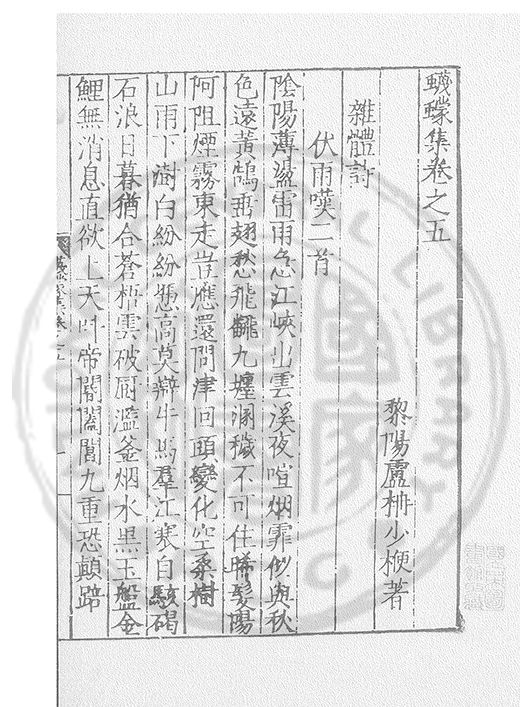 蠛蠓集卷之五
黎陽盧柟少楩著
雜體詩
伏雨嘆二首
陰陽薄盪雷雨急江峽出雲溪夜喧烟霏似與秋
色遠黃鵠垂翅愁飛飜九壥濶穢不可住晞髮陽
阿阻煙霧東走豈應還問津回頭變化空桑樹
山雨下澍白紛紛憑高莫辯牛馬羣江寒自駭碣
石浪日暮猶合蒼梧雲破厨濫釜烟水黑玉盤金
鯉無消息直欲上天叫帝閽閶闔九重恐顛踣